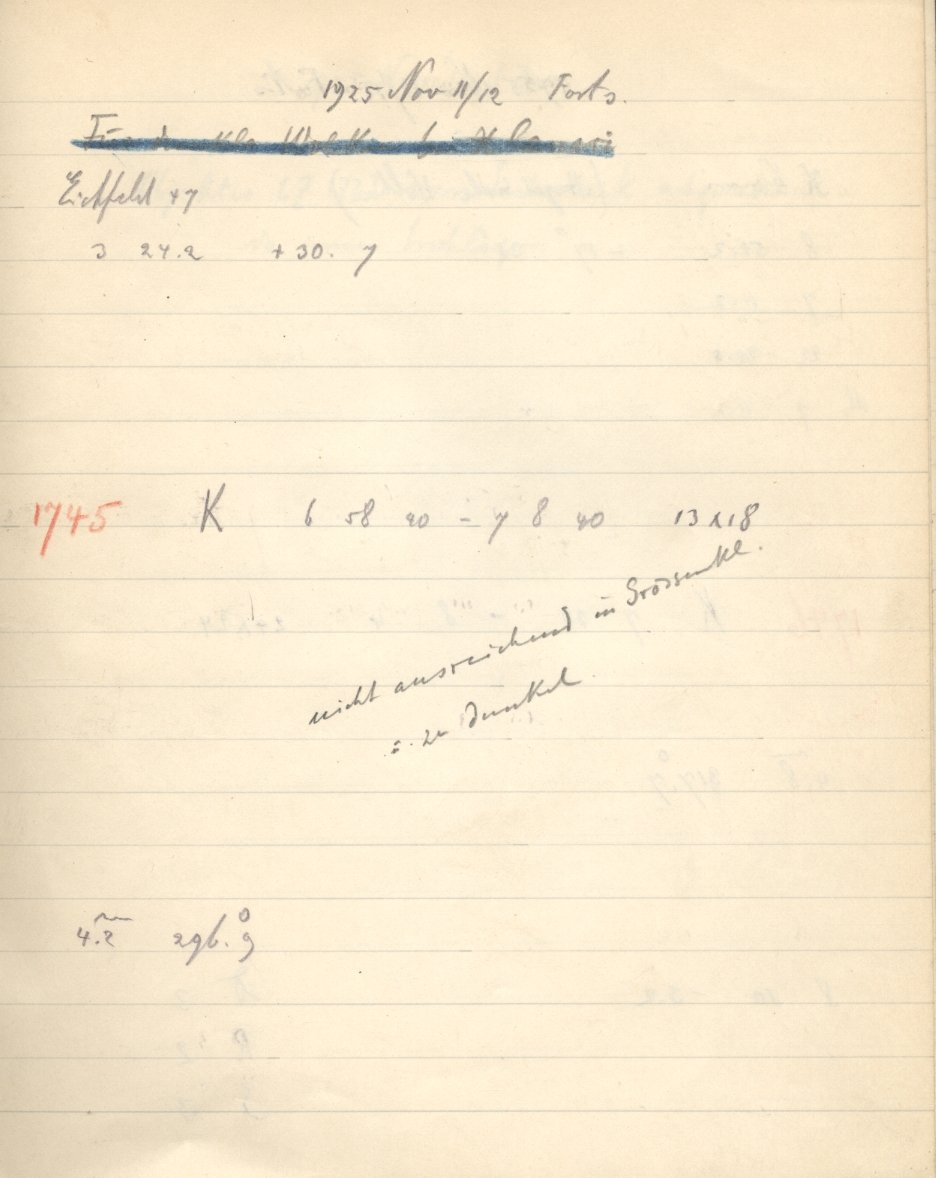 1925 Nov 11/12 Forts.
Für
Eichfeld 47
3 24.2 +30.7
1745 K 6 58 40 - 7 8 40 13x18
nicht ausreichend in Grössenkl.
= zu dunkel
4.2 296.9